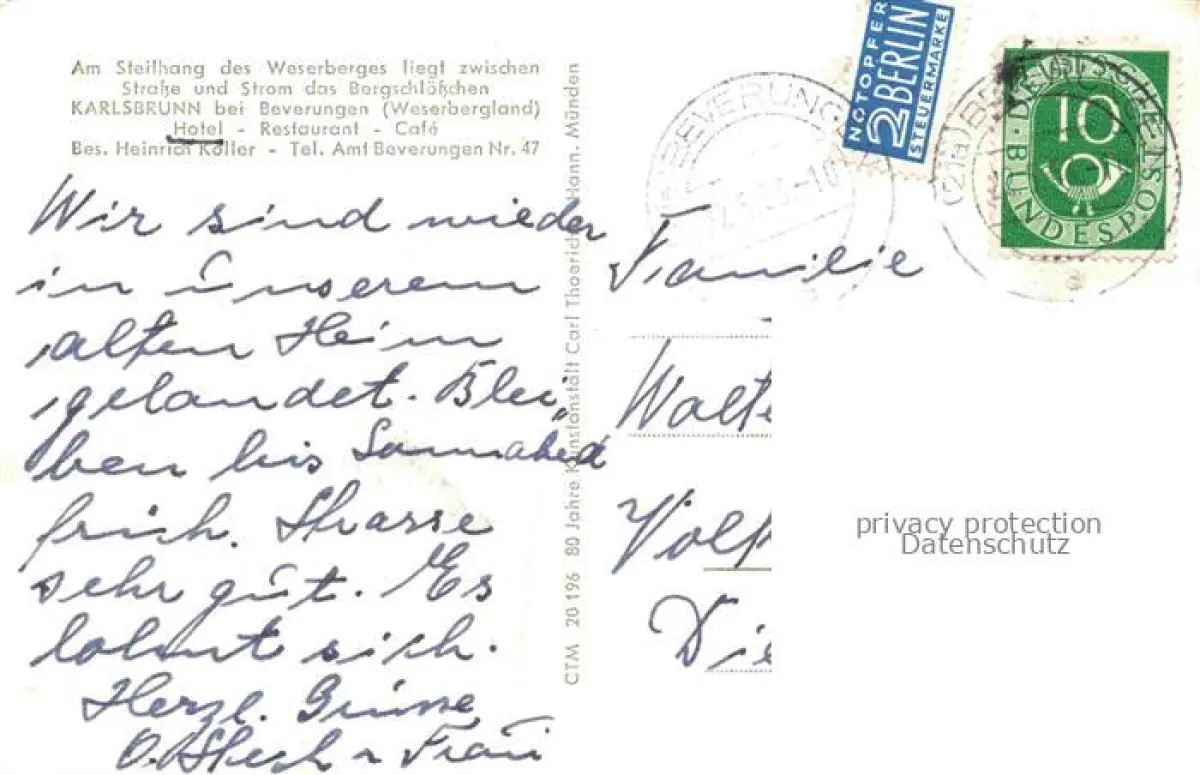 Am Steilhang des Weserberges liegt zwischen
Straße und Strom das Bergschlößchen
KARLSBRUNN bei Beverungen (Weserbergland)
Hotel - Restaurant - Café
Bes. Heinrich Koller - Tel. Amt Beverungen Nr. 47
Wir sind wieder
in unserem
alten Heim
gelandet. Blei„
ben bis Sonnabend
früh. Strasse
sehr gut. Es
lohnt sich.
Herzl. Grüsse
Frau
CTM 20 196 80 Jahre Kunstanstalt Carl Thoericht, Hann. Münden
NOTOPFER
2 BERLIN
STEUERMARKE
DEUTSCHE
BUNDESPOST
10
BEVERUNGEN
Familie
Walte
Die
privacy protection
Datenschutz